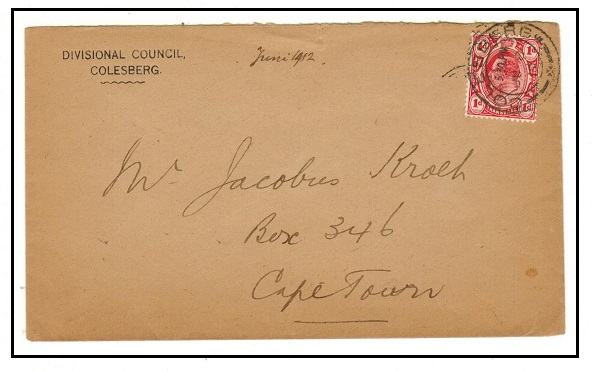 DIVISIONAL COUNCIL,
COLESBERG.
Juni 1912.
Mr Jacobus Kroeh
Box 346
Cape Town
COLESBERG
1d 1d